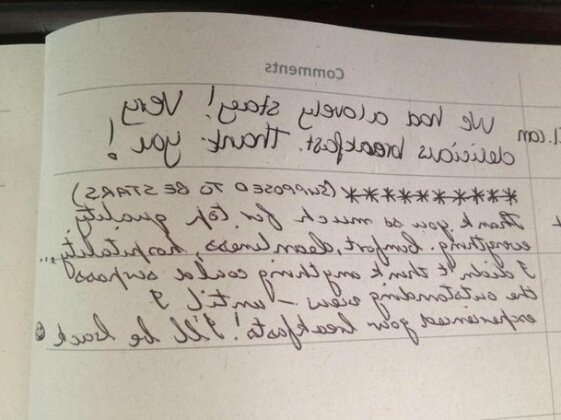 Comments
We had a lovely stay! Very
delicious breakfast. Thank you!
********** (SUPPOSED TO BE STARS)
Thank you so much for top quality
everything. Comfort, cleanliness, hospitality,...
I didn't think anything could surpass
the outstanding views – until I
experienced your breakfasts! I'll be back